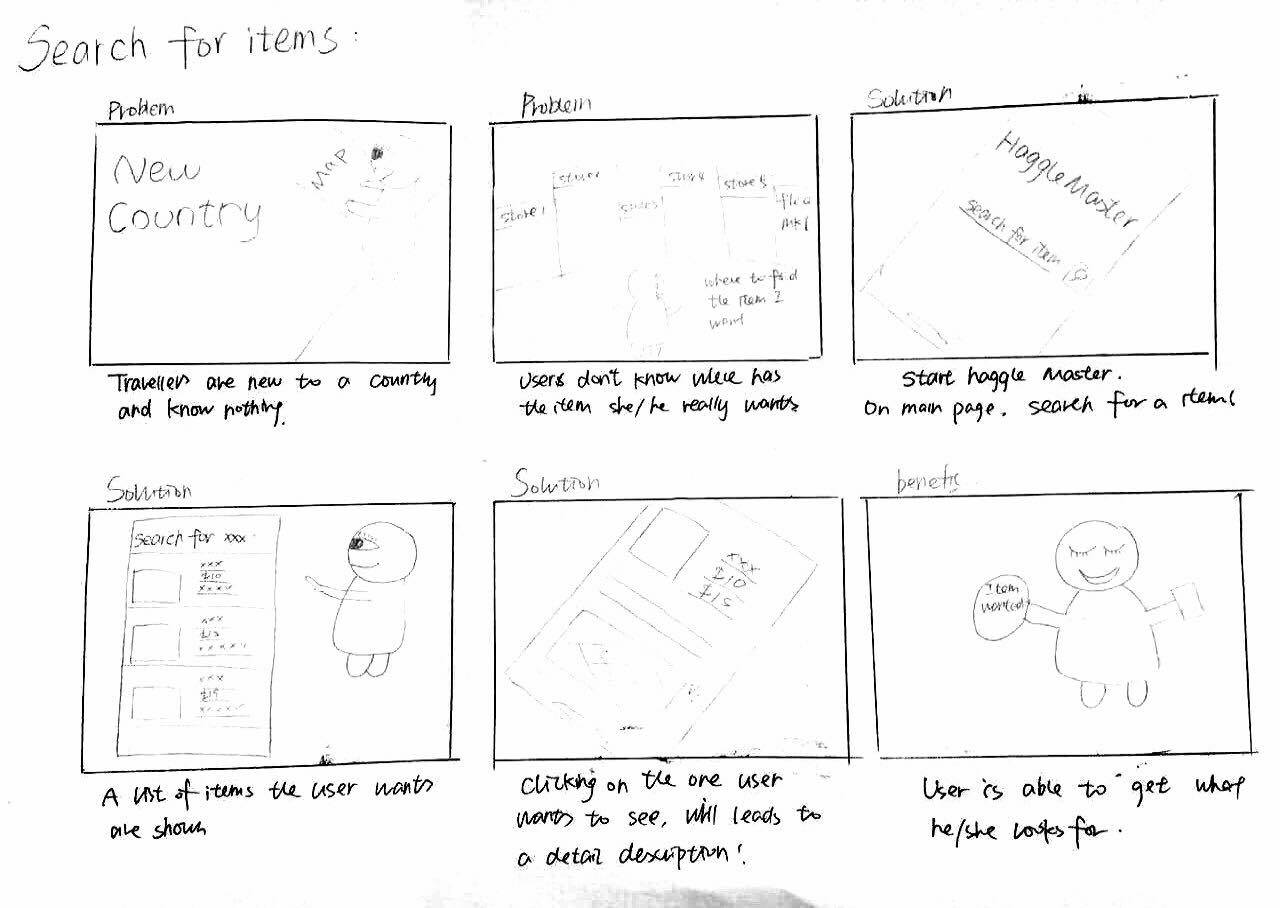 Search for items :
Problem
New
Country
Map
Travellers are new to a country
and know nothing.
Problem
store 1
store
store
store 5
where to find
the item I
want
Users don't know where has
the item she/he really wants
Solution
Haggle Master
search for item
Start haggle Master.
On main page. search for a item
Solution
search for xxx
xxx
$10
xxxxx
xxx
$15
xxxxx
xxx
$19
xxxxx
A list of items the user wants
are shown
Solution
xxx
$10
$15
Clicking on the one user
wants to see, will leads to
a detail description!
benefits
Item
wanted
User is able to get what
he/she looks for.